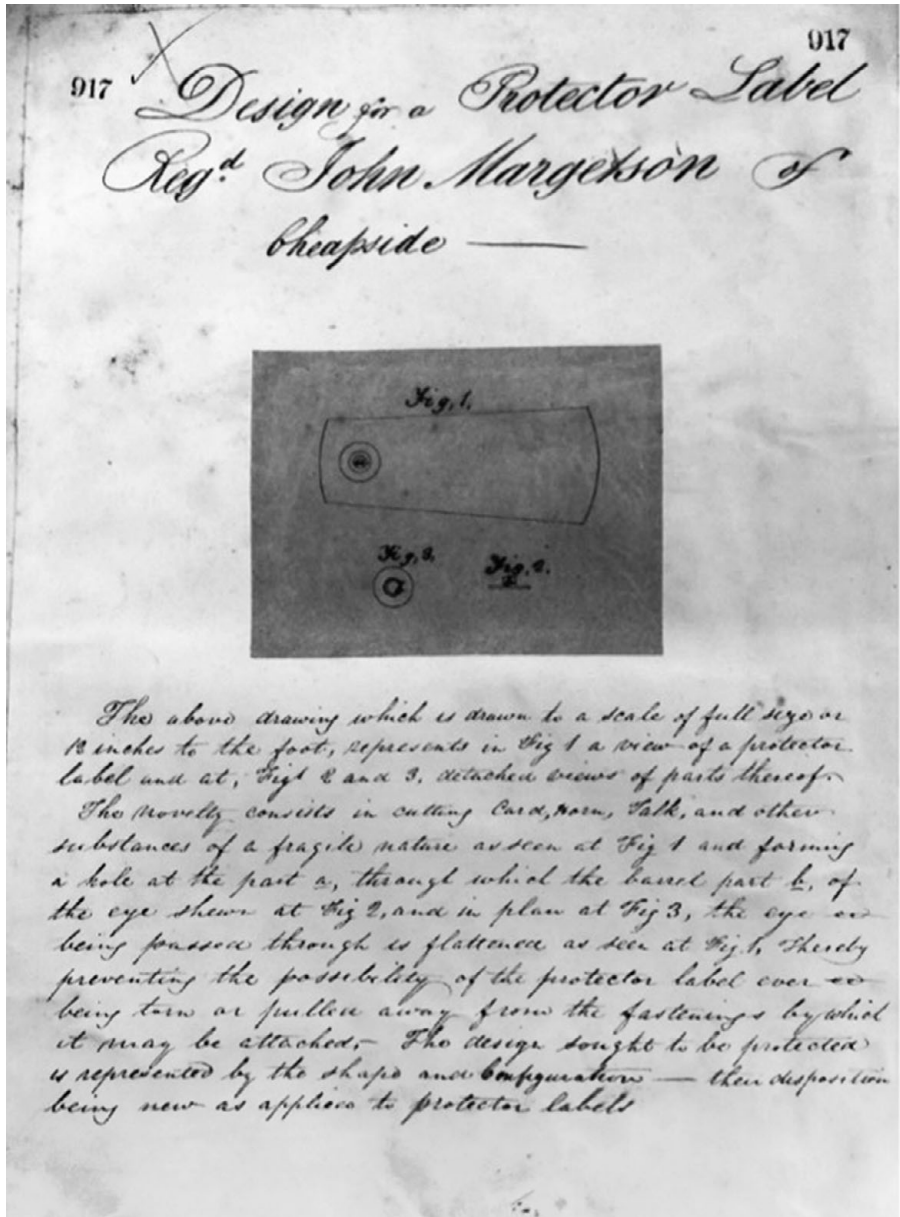 917
917
Design for a Protector Label
Regd. John Margetson of
Cheapside
Fig, 1.
Fig, 3.
Fig, 2.
The above drawing which is drawn to a scale of full size or
12 inches to the foot, represents in Fig 1 a view of a protector
label and at, Figs 2 and 3, detached views of parts thereof.
The novelty consists in cutting Card, Horn, Talk, and other
substances of a fragile nature as seen at Fig 1 and forming
a hole at the part a, through which the barrel part b, of
the eye shewn at Fig 2, and in plan at Fig 3, the eye
being passed through is flattened as seen at Fig 1, thereby
preventing the possibility of the protector label ever
being torn or pulled away from the fastenings by which
it may be attached,- The design sought to be protected
is represented by the shape and Configuration — then disposition
being new as applied to protector labels